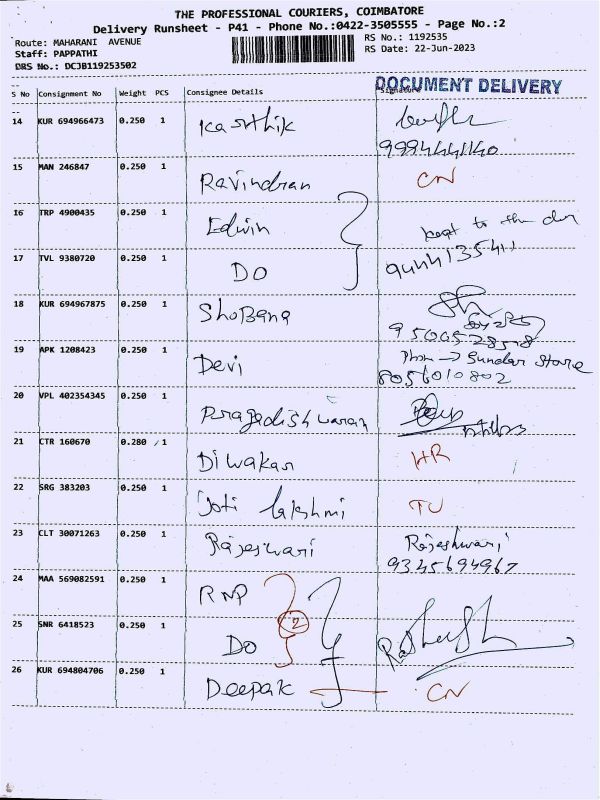 THE PROFESSIONAL COURIERS, COIMBATORE
Delivery Runsheet - P41 - Phone No.:0422-3505555 - Page No.:2
Route: MAHARANI AVENUE
RS No.: 1192535
Staff: PAPPATHI
RS Date: 22-Jun-2023
DRS No.: DCJB119253502
DOCUMENT DELIVERY
S No Consignment No Weight PCS Consignee Details Signature
14 KUR 694966473 0.250 1 Karthik
9994441140
15 MAN 246847 0.250 1 Ravindran CN
16 TRP 4900435 0.250 1 Edwin kept to the
17 TVL 9380720 0.250 1 DO 9444135411
18 KUR 694967875 0.250 1 Shobana
9500528578
19 APK 1208423 0.250 1 Devi Phon → Sundar Store
8056010802
20 VPL 402354345 0.250 1 Pragadishwaran
21 CTR 160670 0.280 1 Diwakar HR
22 SRG 383203 0.250 1 Joti lakshmi TU
23 CLT 30071263 0.250 1 Rajeswari Rajeshwari
9345694967
24 MAA 569082591 0.250 1 RNP
2
25 SNR 6418523 0.250 1 DO
26 KUR 694804706 0.250 1 Deepak CN